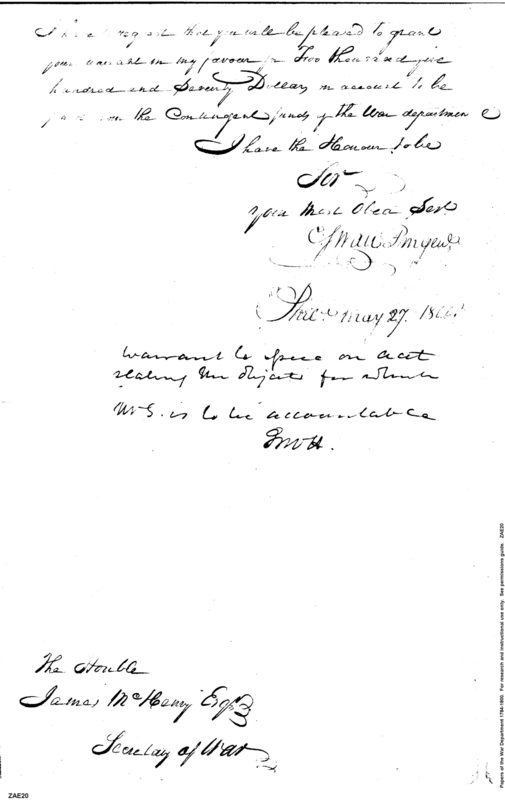 I have to request that you will be pleased to grant
your warrant in my favour for Two thousand five
hundred and Seventy Dollars on account to be
paid on the Contingent funds of the War department
I have the Honour to be
Sir
your Most Obed Ser
Phil May 27.
Warrant to issue on acct
stating the objects for which
Mr S. is to be accountable
The Honble
James McHenry Esqr
Secretary of War
Papers of the War Department 1784-1800. For research and instructional use only. See permissions guide. ZAE20
ZAE20